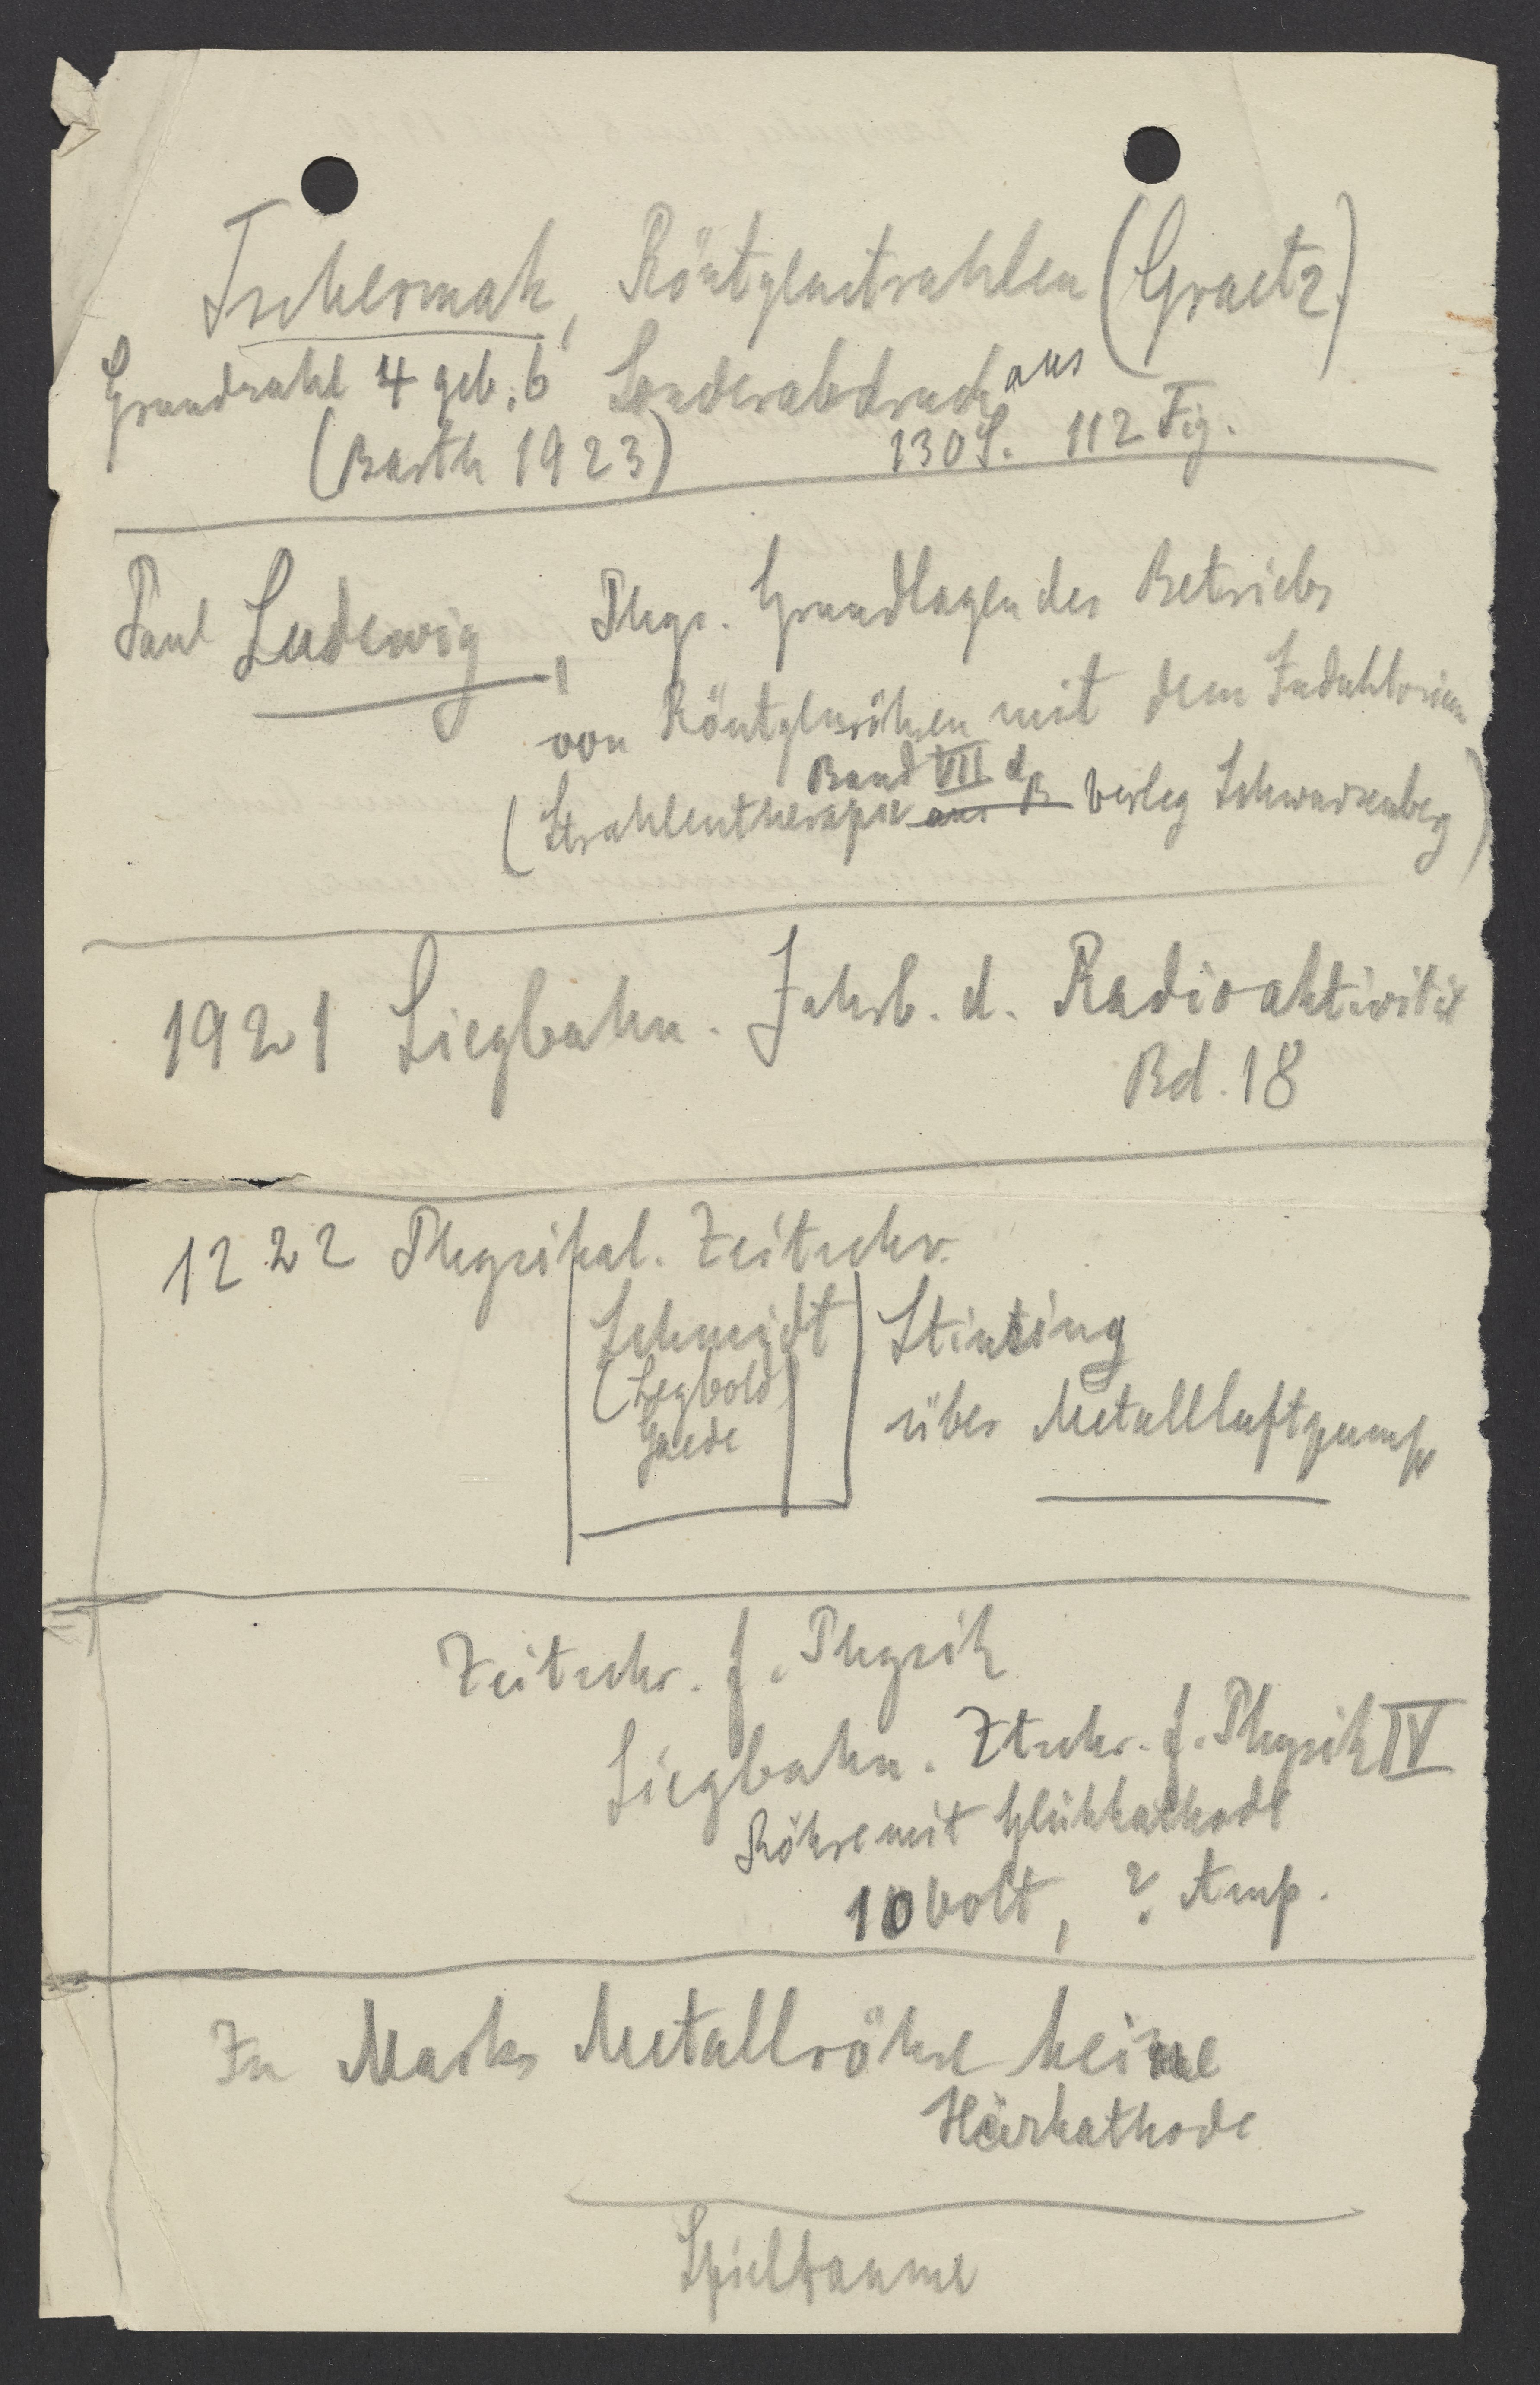 Tschermak, Röntgenstrahlen (Graetz)
Grundzahl 4 geb. 6 Sonderabdruck aus
(Barth 1923) 130 S. 112 Fig.
Paul Ludewig, Phys. Grundlagen des Betriebs
von Röntgenröhren mit dem Induktorium
Band VII d
(Strahlentherapie aus B Verlag Schwarzenberg)
1921 Siegbahn. Jahrb. d. Radioaktivität
Bd. 18
1222 Physikal. Zeitschr.
Schmidt Stintzing
(Leybold über Metallluftpumpe
Gaede
Zeitschr. f. Physik
Siegbahn. Ztschr. f. Physik IV
Röhre mit Glühkathode
10 Volt, ? Amp.
In Marks Metallröhre keine
Härkathode